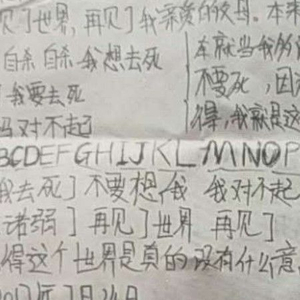 见了世界,再见了我亲爱的父母。本来
自杀 自杀 我想去死
本就当我的
我要去死
不要死,因
妈对不起
得,我就是这
ABCDEFGHIJKLMNOP
我去死】不要想我 我对不起
诺弱】再见】世界 再见】
得这个世界是真的没有什么意